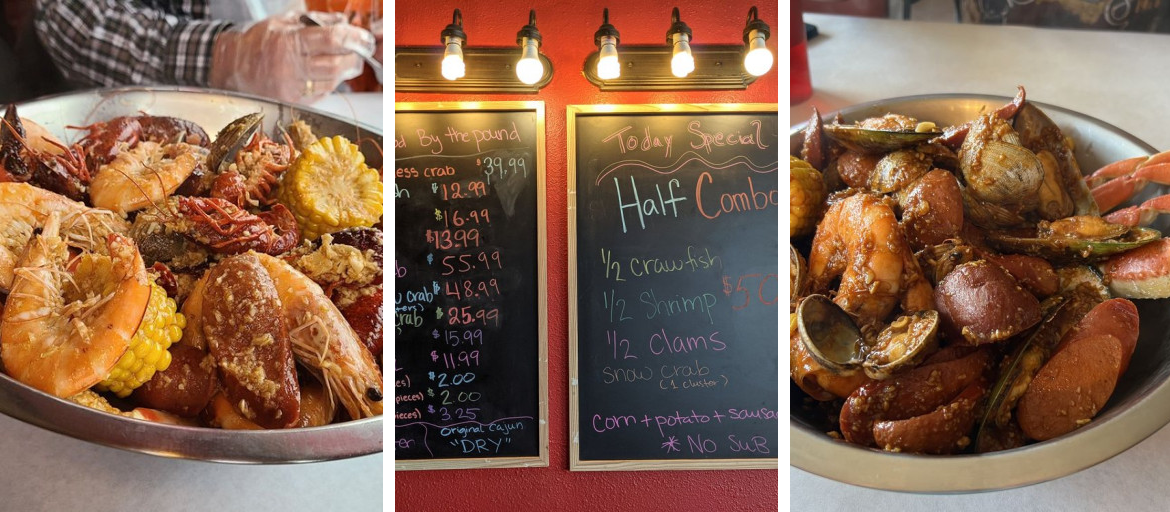 d By the pound
ess crab $39.99
h $12.99
$16.99
$13.99
b $55.99
w crab $48.99
crab $25.99
$15.99
$11.99
es) $2.00
pieces) $2.00
pieces) $3.25
er Original Cajun
"DRY"
Today Special
Half Combo
1/2 crawfish
1/2 Shrimp $50
1/2 Clams
snow crab
(1 cluster)
Corn + potato + sausa
* No SUB